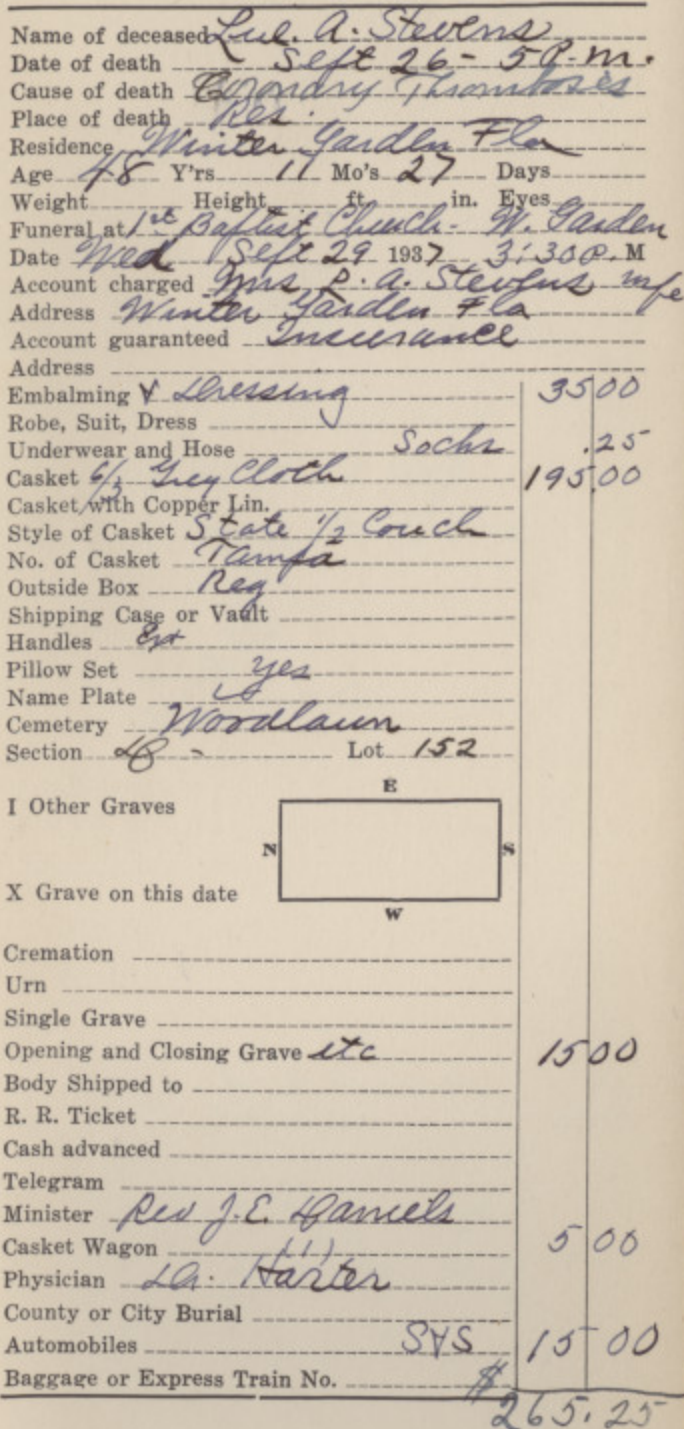 Name of deceased A. Stevens
Date of death Sept 26 - 5 P.m.
Cause of death Coronary Thrombosis
Place of death Res.
Residence Winter Garden Fla
Age 48 Y'rs 11 Mo's 27 Days
Weight Height ft. in. Eyes
Funeral at 1st Baptist Church - W. Garden
Date Wed Sept 29 1937 3:30 P. M
Account charged Mrs L. A. Stevens wife
Address Winter Garden Fla
Account guaranteed Insurance
Address
Embalming & Dressing 35 00
Robe, Suit, Dress
Underwear and Hose Socks .25
Casket 6/3 Grey Cloth 195.00
Casket with Copper Lin.
Style of Casket State 1/2 Couch
No. of Casket Tampa
Outside Box Reg
Shipping Case or Vault
Handles Ext
Pillow Set yes
Name Plate
Cemetery Woodlawn
Section - Lot 152
E
I Other Graves
N S
X Grave on this date
W
Cremation
Urn
Single Grave
Opening and Closing Grave etc 15 00
Body Shipped to
R. R. Ticket
Cash advanced
Telegram
Minister Rev J.E. Daniels
Casket Wagon (1) 5 00
Physician Dr. Harter
County or City Burial
Automobiles S&S 15 00
Baggage or Express Train No. $
265.25